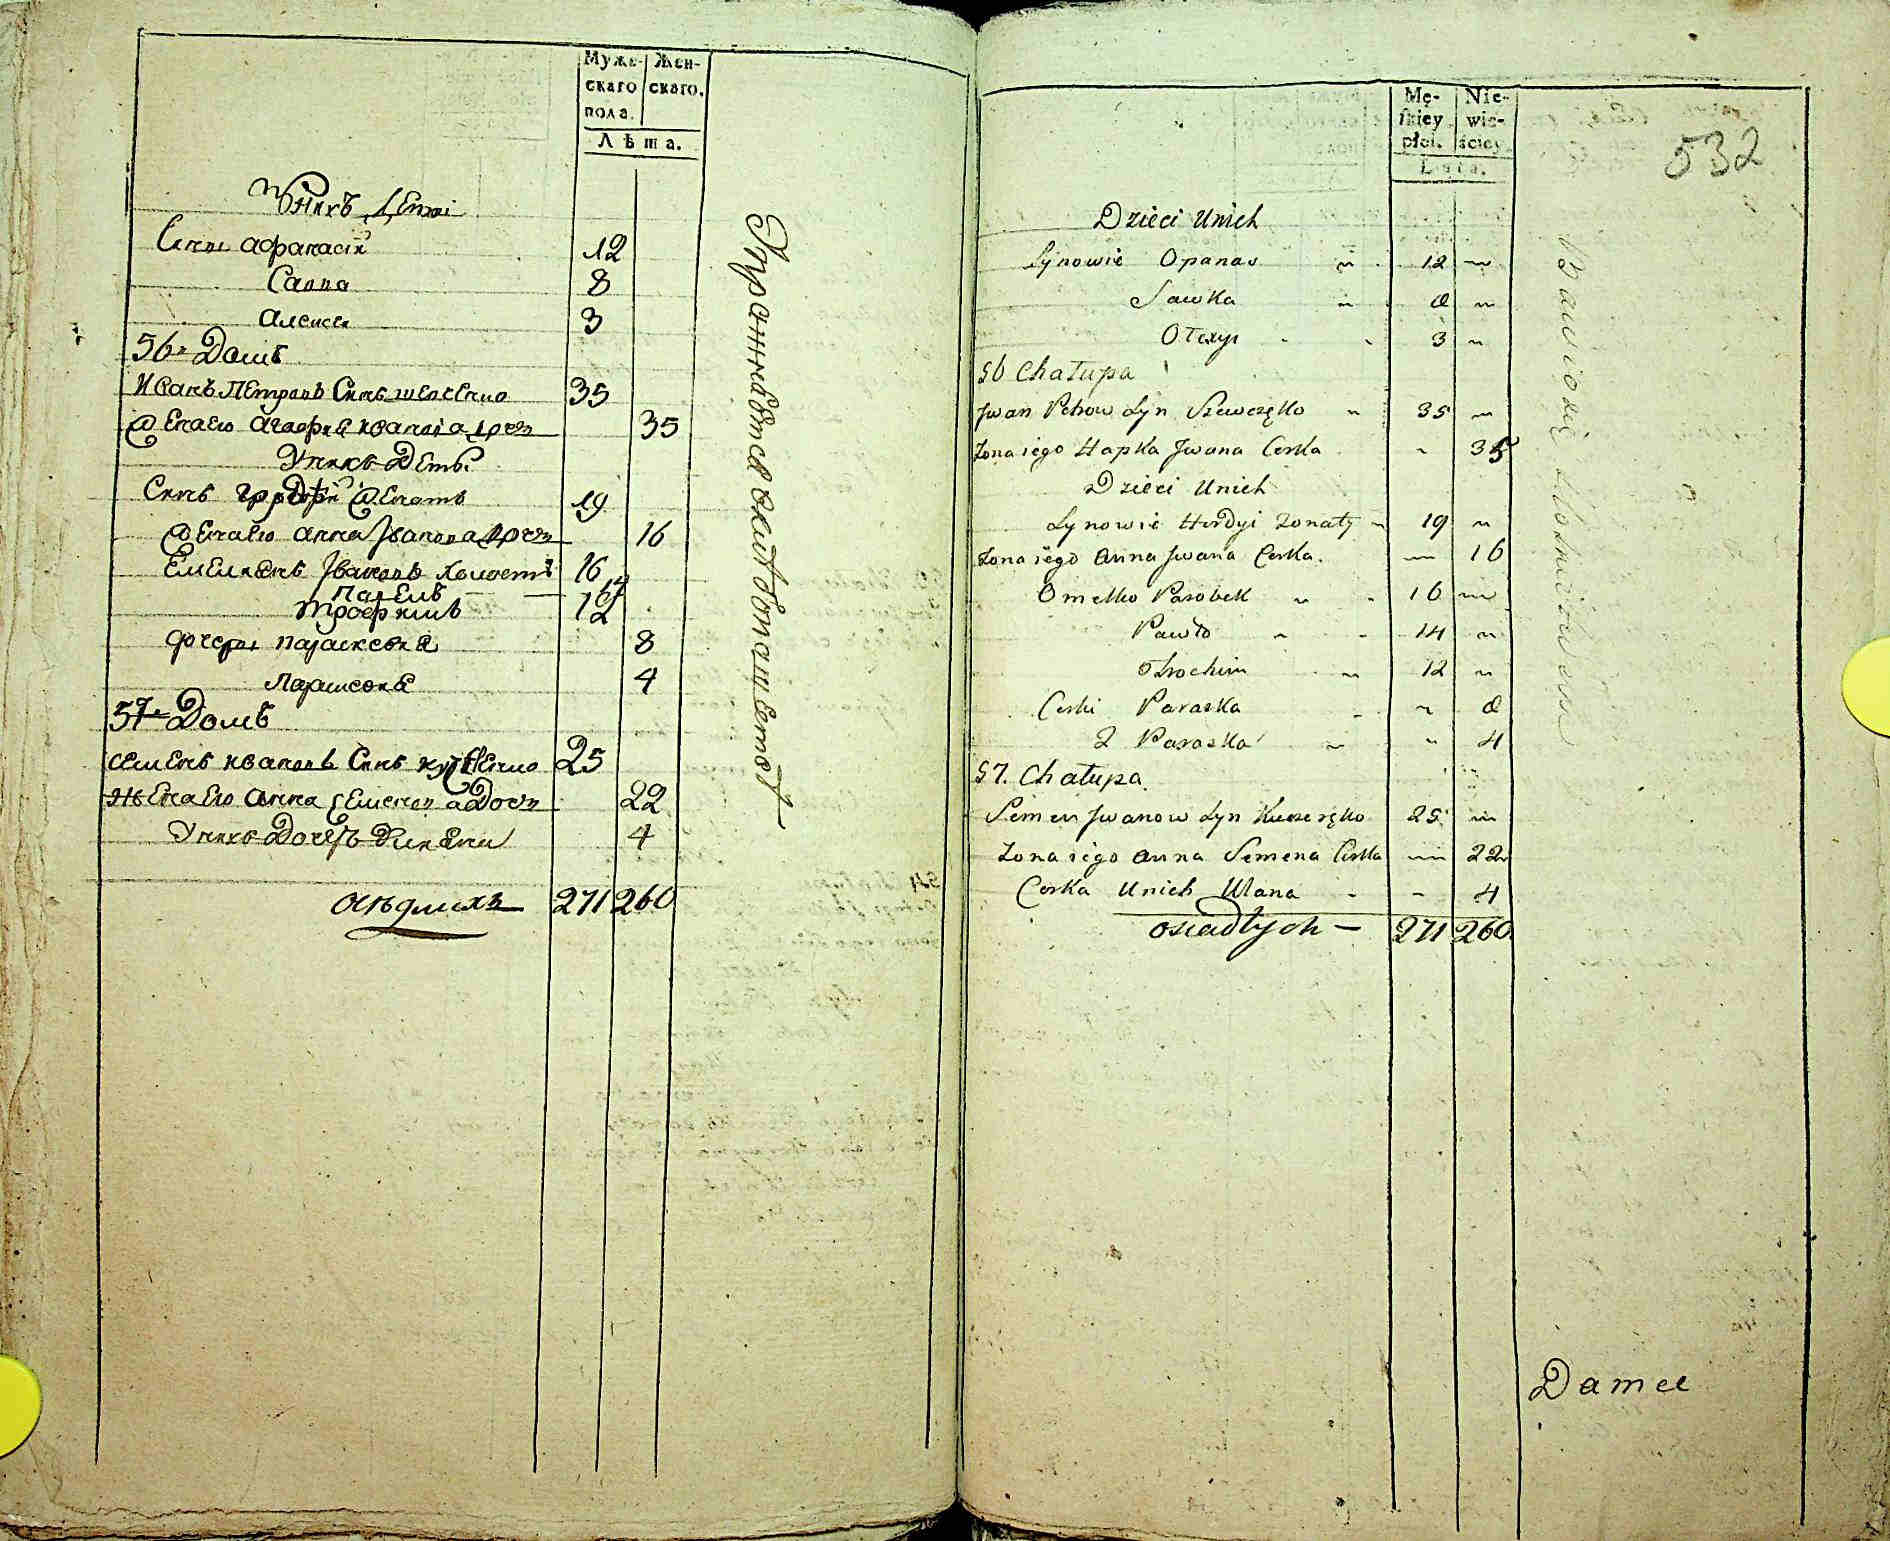 Муже- Жен-
скаго скаго.
пола.
Лѣта.
Унихъ Дети
Сины афанасій 12
Савва 8
алексей 3
56 Домъ
Иванъ Петровъ Синъ шевченко 35
Жена его агафия иванова доч 35
Унихъ Дети
Синъ Женатъ 19
Жена его анна Иванова Доч 16
Емельянъ Ивановъ холостъ 16
Павелъ 14
Трофимъ 12
Дочери параскевия 8
параскева 4
57 Домъ
Семенъ ивановъ Синъ 25
Жена Его анна Семенова Доч 22
Унихъ Дочеръ 4
осѣдлихъ 271 260
Mę- Nie-
skiey wie-
płci. ściey
Lata.
532
Dzieci Unich
Synowie Opanas 12
Sawka 8
Olexyi 3
56 Chałupa
Jwan Petrow Syn Szewczęko 35
Zona iego Hapka Jwana Corka 35
Dzieci Unich
Synowie Hordyi Zonaty 19
Zona iego Anna Jwana Corka. 16
Omelko Parobek 16
Pawło 14
Otrochim 12
Corki Paraska 8
2 Paraska 4
57. Chałupa.
Semen Jwanow Syn 25
Zona iego Anna Semena Corka 22
Corka Unich Ulana 4
osiadłych 271 260